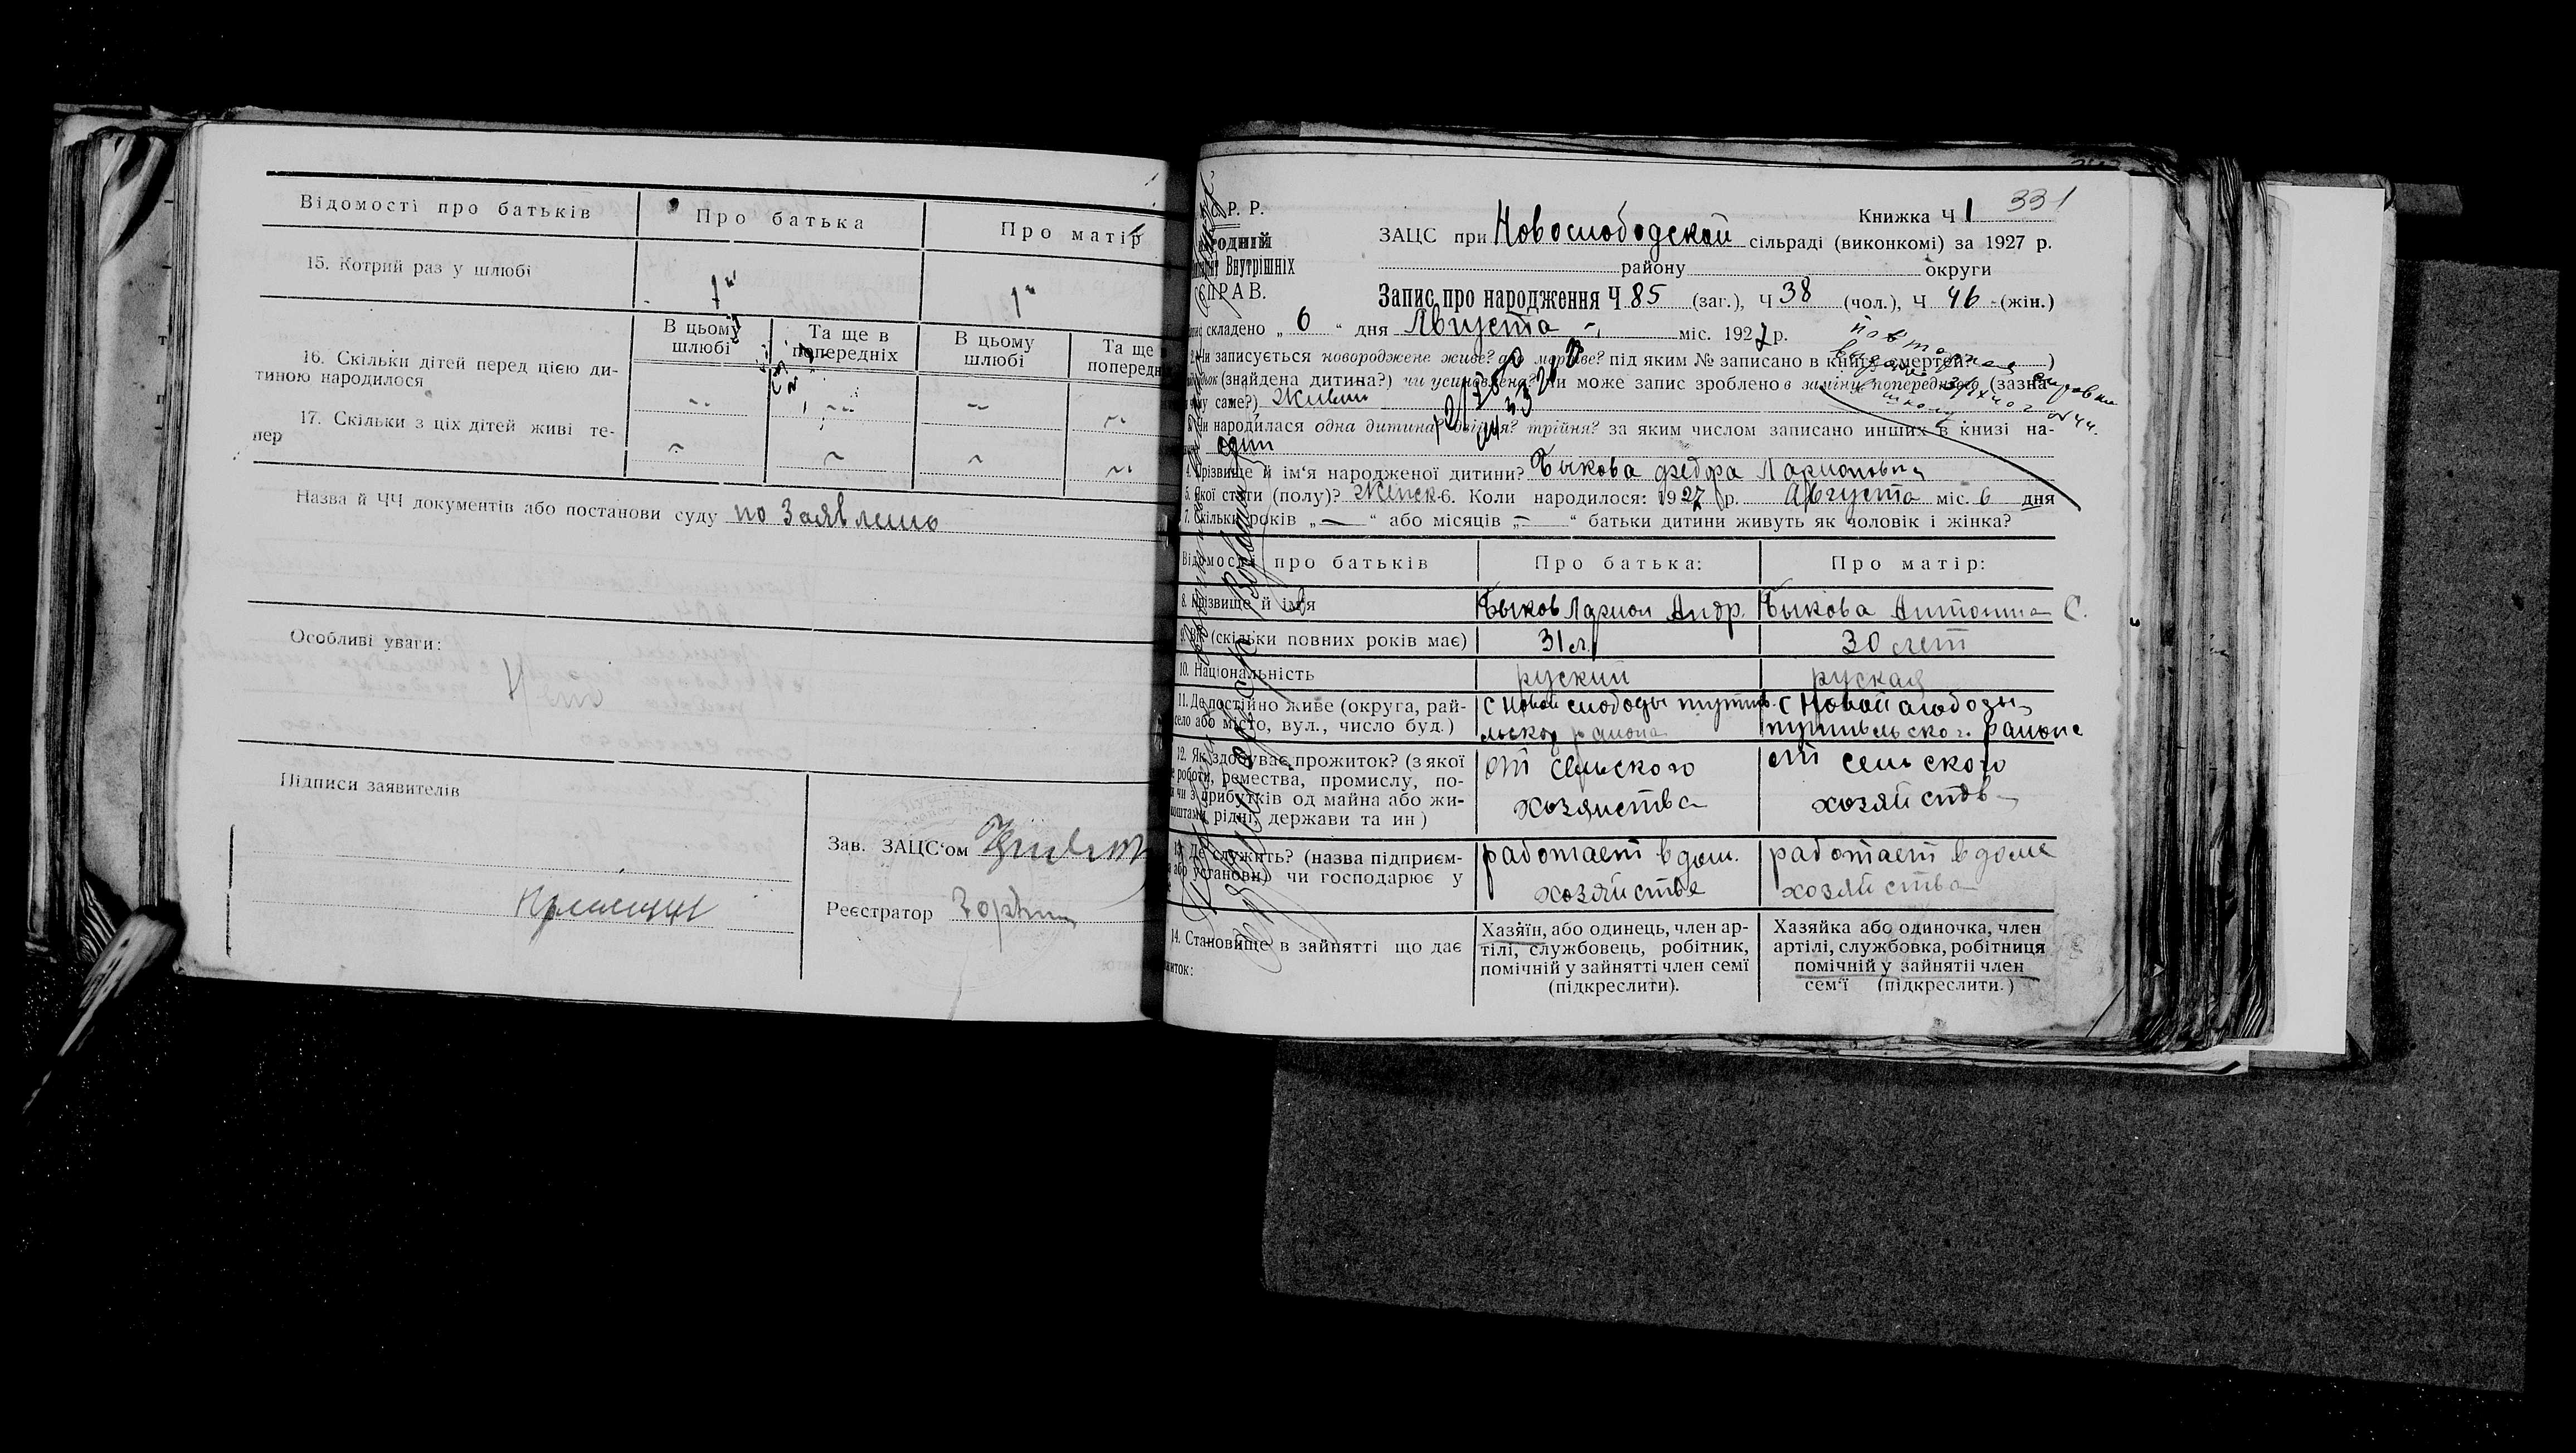 Відомості про батьків
Про батька
Про матір
15. Котрий раз у шлюбі
1й
1й
В цьому шлюбі
Та ще в попередніх
В цьому шлюбі
Та ще
попередн
16. Скільки дітей перед цією ди-
тиною народилося
17. Скільки з ціх дітей живі те-
пер
Назва й ЧЧ документів або постанови суду по Заявлению
Особливі уваги:
Підписи заявителів
Зав. ЗАЦС‘ом
Реєстратор
331
Книжка Ч 1
С. Р. Р.
ЗАЦС при Новослободской сільраді (виконкомі) за 1927 р.
Внутрішніх
району округи
СПРАВ.
Запис про народження Ч 85 (заг.), Ч 38 (чол.), Ч 46 (жін.)
складено „ 6 “ дня Августа міс. 1927 р.
повторная
Чи записується новороджене живе? або мертве? під яким № записано в книзі смертей? )
(знайдена дитина?) чи усиновлена? Чи може запис зроблено в заміну попереднього (зазна-
саме?) Живым
Чи народилася одна дитина? двійня? трійня? за яким числом записано инших в книзі на-
один
4. Прізвище й ім‘я народженої дитини? Быкова Федора Ларионовна
5. Якої статі (полу)? Женск. 6. Коли народилося: 1927 р. Августа міс. 6 дня
7. Скільки років „—“ або місяців „—“ батьки дитини живуть як чоловік і жінка?
Відомости про батьків
Про батька:
Про матір:
8. Прізвище й ім‘я
Быков Ларион Андр.
Быкова Антонина С.
9. Вік (скільки повних років має)
31 л.
30 лет
10. Національність
руский
руская
11. Де постійно живе (округа, рай-
село або місто, вул., число буд.)
с Новой слободы путив-
льског района
с Новой слободы
путивльског. района
12. Як здобуває прожиток? (з якої
роботи, ремества, промислу, по-
чи з прибутків од майна або жи-
коштами рідні, держави та ин)
от сельского
хозяиства
от сельского
хозяйства
13. Де служить? (назва підприєм-
або установи) чи господарює у
работает в дом.
хозяйстве
работает в доме
хозяйства
14. Становище в зайнятті що дає
житок:
Хазяїн, або одинець, член ар-
тілі, службовець, робітник,
помічній у зайнятті член семї
(підкреслити).
Хазяйка або одиночка, член
артілі, службовка, робітниця
помічній у зайнятіі член
сем‘ї (підкреслити.)